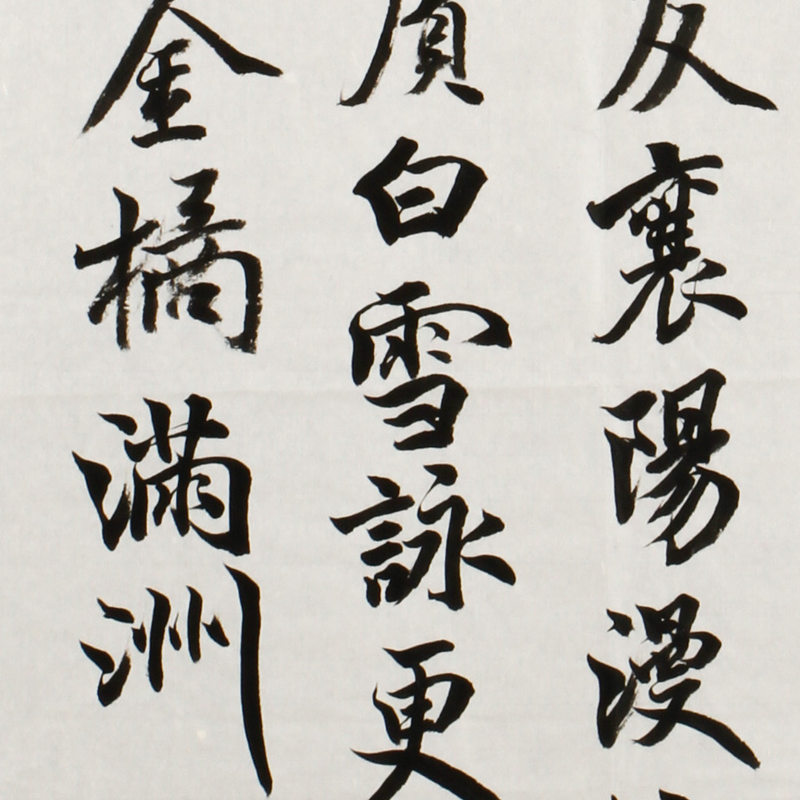 友襄陽漫
賡白雪詠更
金橘滿洲